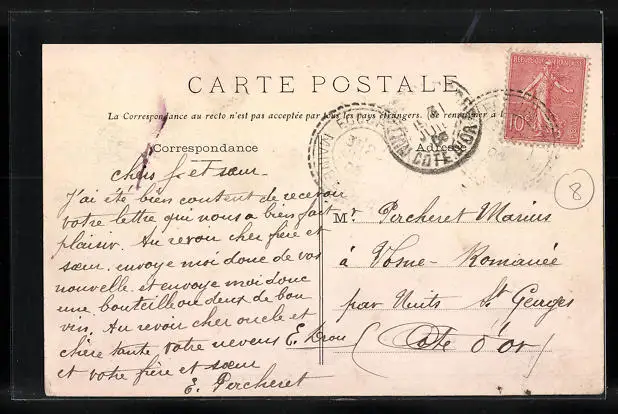 CARTE POSTALE
La Correspondance au recto n'est pas acceptée par tous les pays étrangers. (Se renseigner à la
Correspondance
Adresse
REPUBLIQUE FRANÇAISE
10
CÔTE-D'OR
8
chers f et sœur
J'ai été bien content de recevoir
votre lettre qui nous a bien fait
plaisir. Au revoir cher frère et
sœur envoye moi donc de vos
nouvelle et envoye moi donc
une bouteille ou deux de bon
vin. Au revoir cher oncle et
chère tante votre neveus E.
et votre fière et sœur
E. Percheret
Mr Percheret Marius
à Vosne-Romanée
par Nuits St Georges
(Côte d'or)